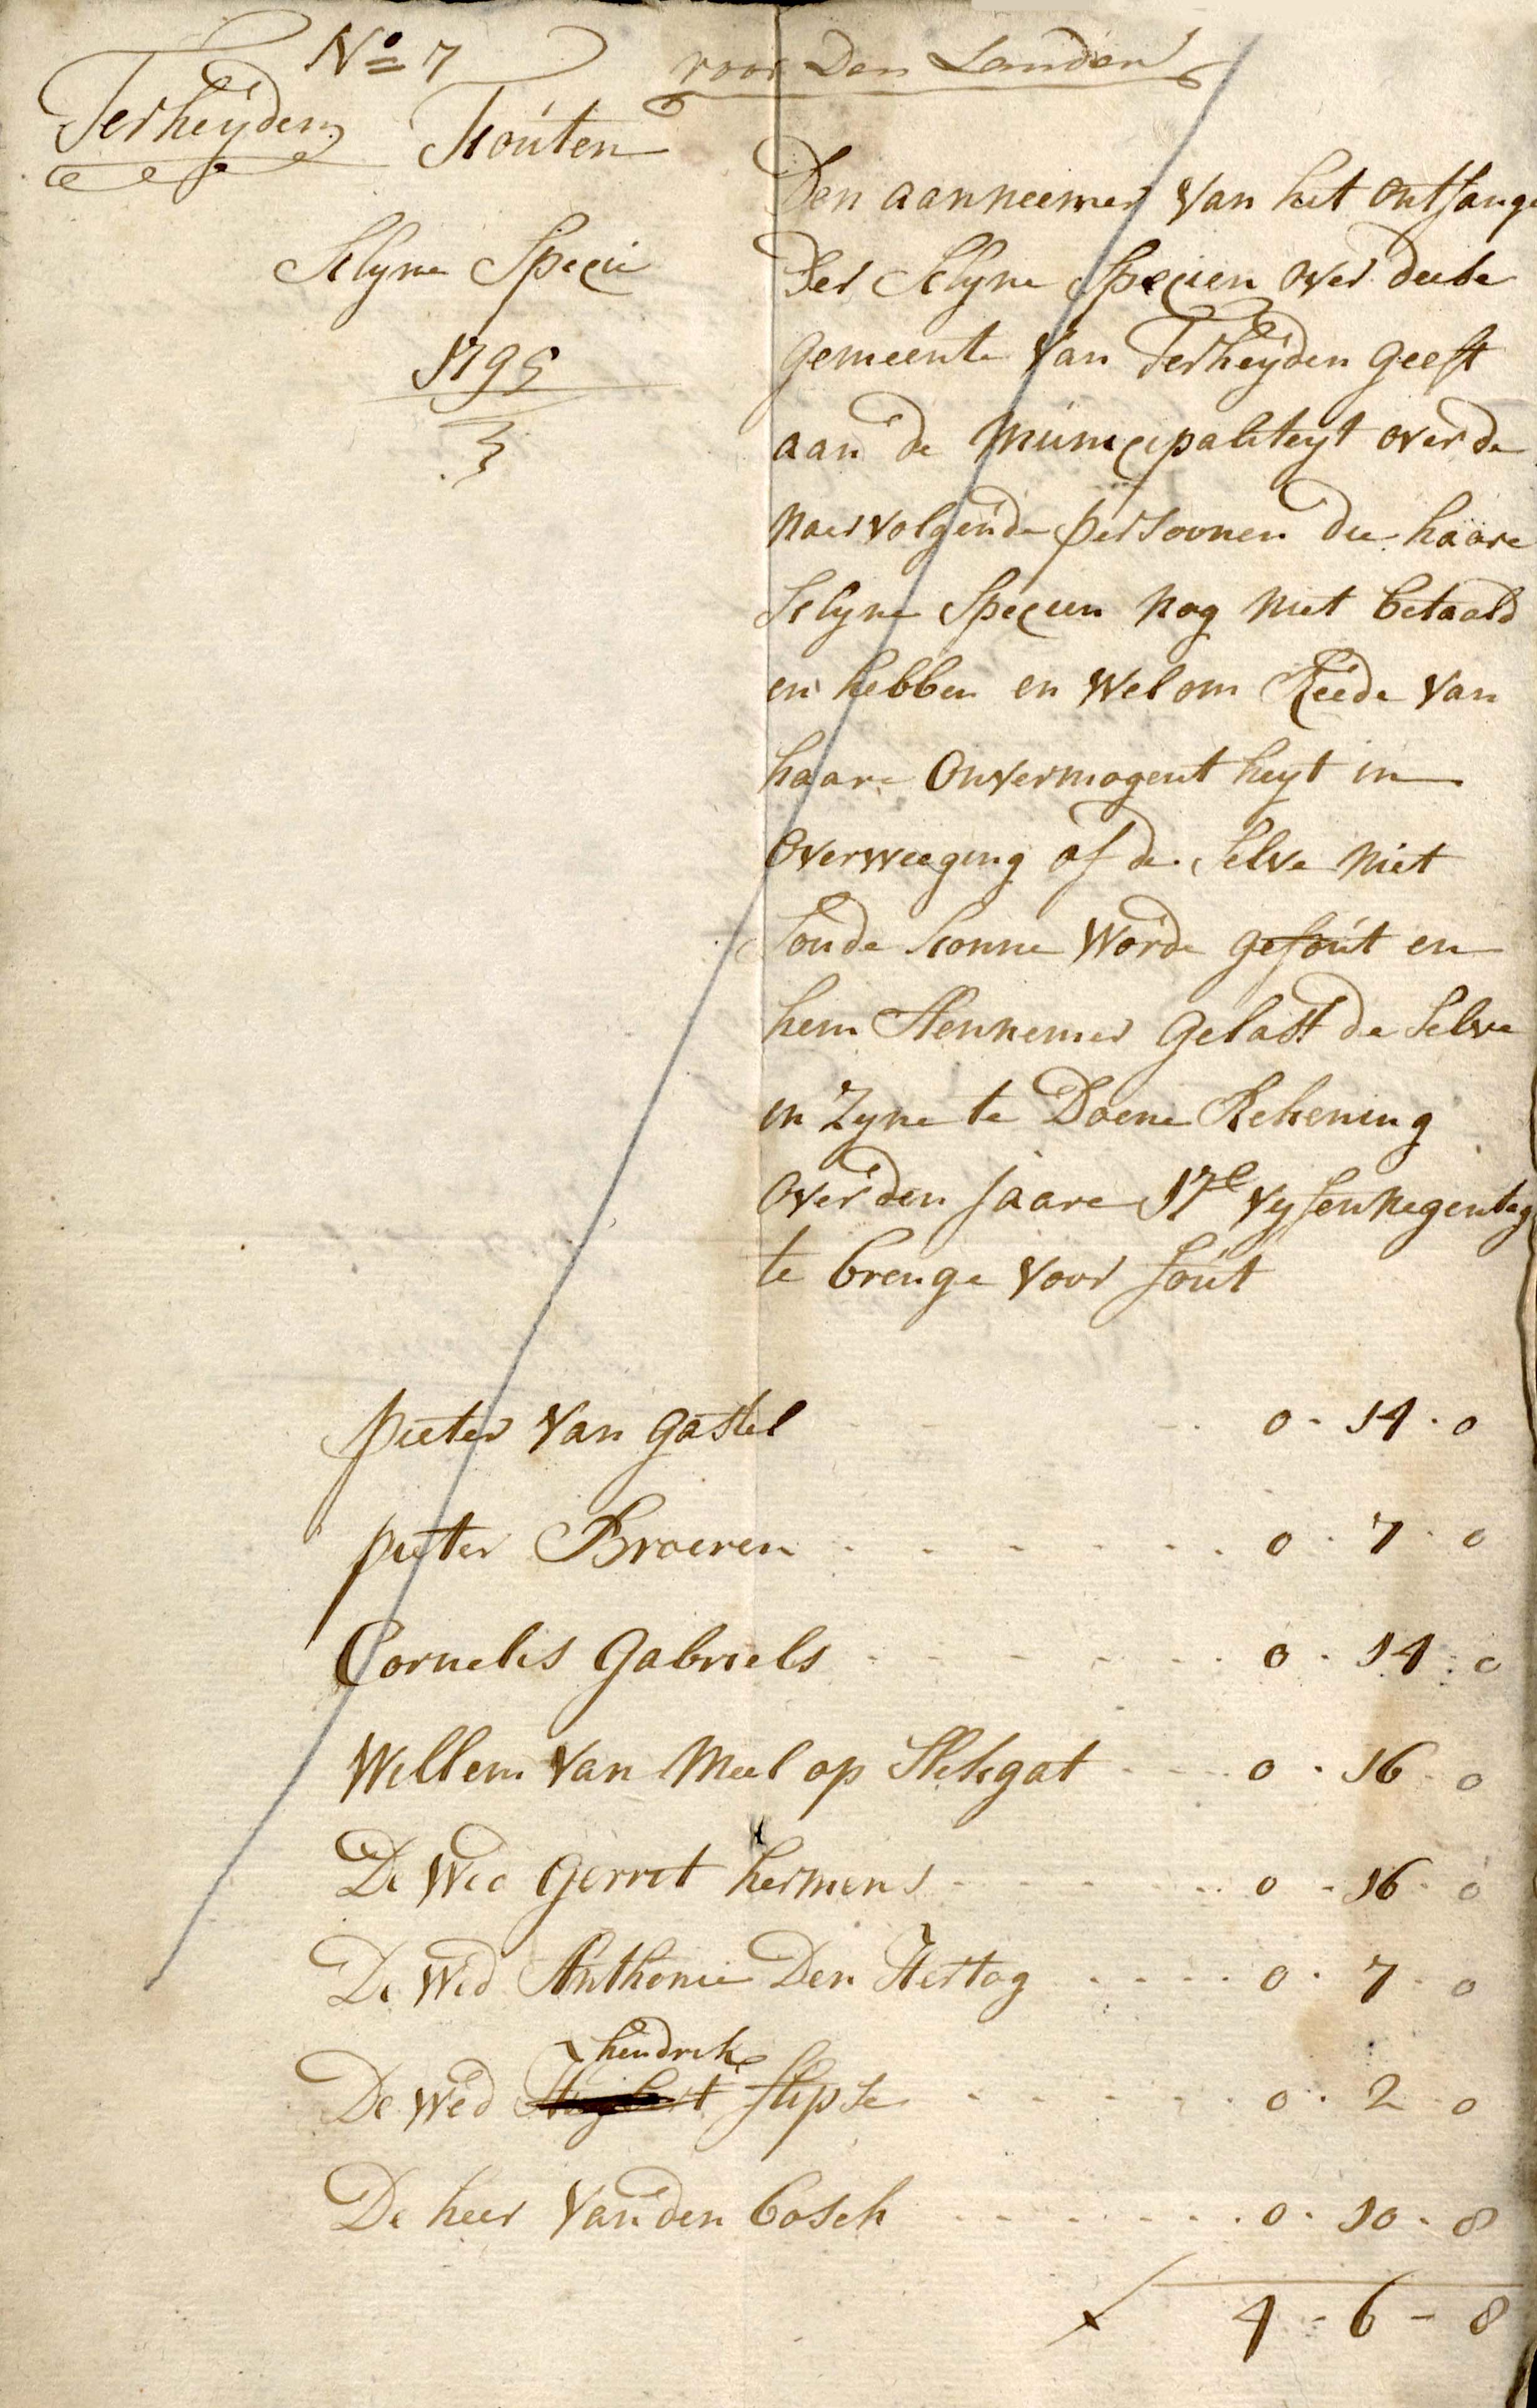 No 7
voor Den Lande
Terheyden Fouten
Klyne Specie
1795
Den aanneemer van het ontfange
Der Klyne Specien over deese
gemeente van Terheyden geeft
aan de Municipaliteyt over de
naervolgende persoonen die haare
Klyne Specien nog niet betaald
en hebben en Wel om Reede van
haare Onvermogentheyt in
overweeging of de selve niet
soude konne Worde gefout en
hem Aennemer gelast de selve
in Zyne te Doene Rekening
over den jaare 17c vyfennegentig
te brenge voor fout
pieter van gastel 0 - 14 - 0
pieter Broeren 0 - 7 - 0
Cornelis gabriels 0 - 14 - 0
Willem van Meel op Slikgat 0 - 16 - 0
De Wed gerrit hermens 0 - 16 - 0
De Wed Anthonie Den Hertog 0 - 7 - 0
hendrik
De Wed flipse 0 - 2 - 0
De heer van den bosch 0 - 10 - 8
4 - 6 - 8